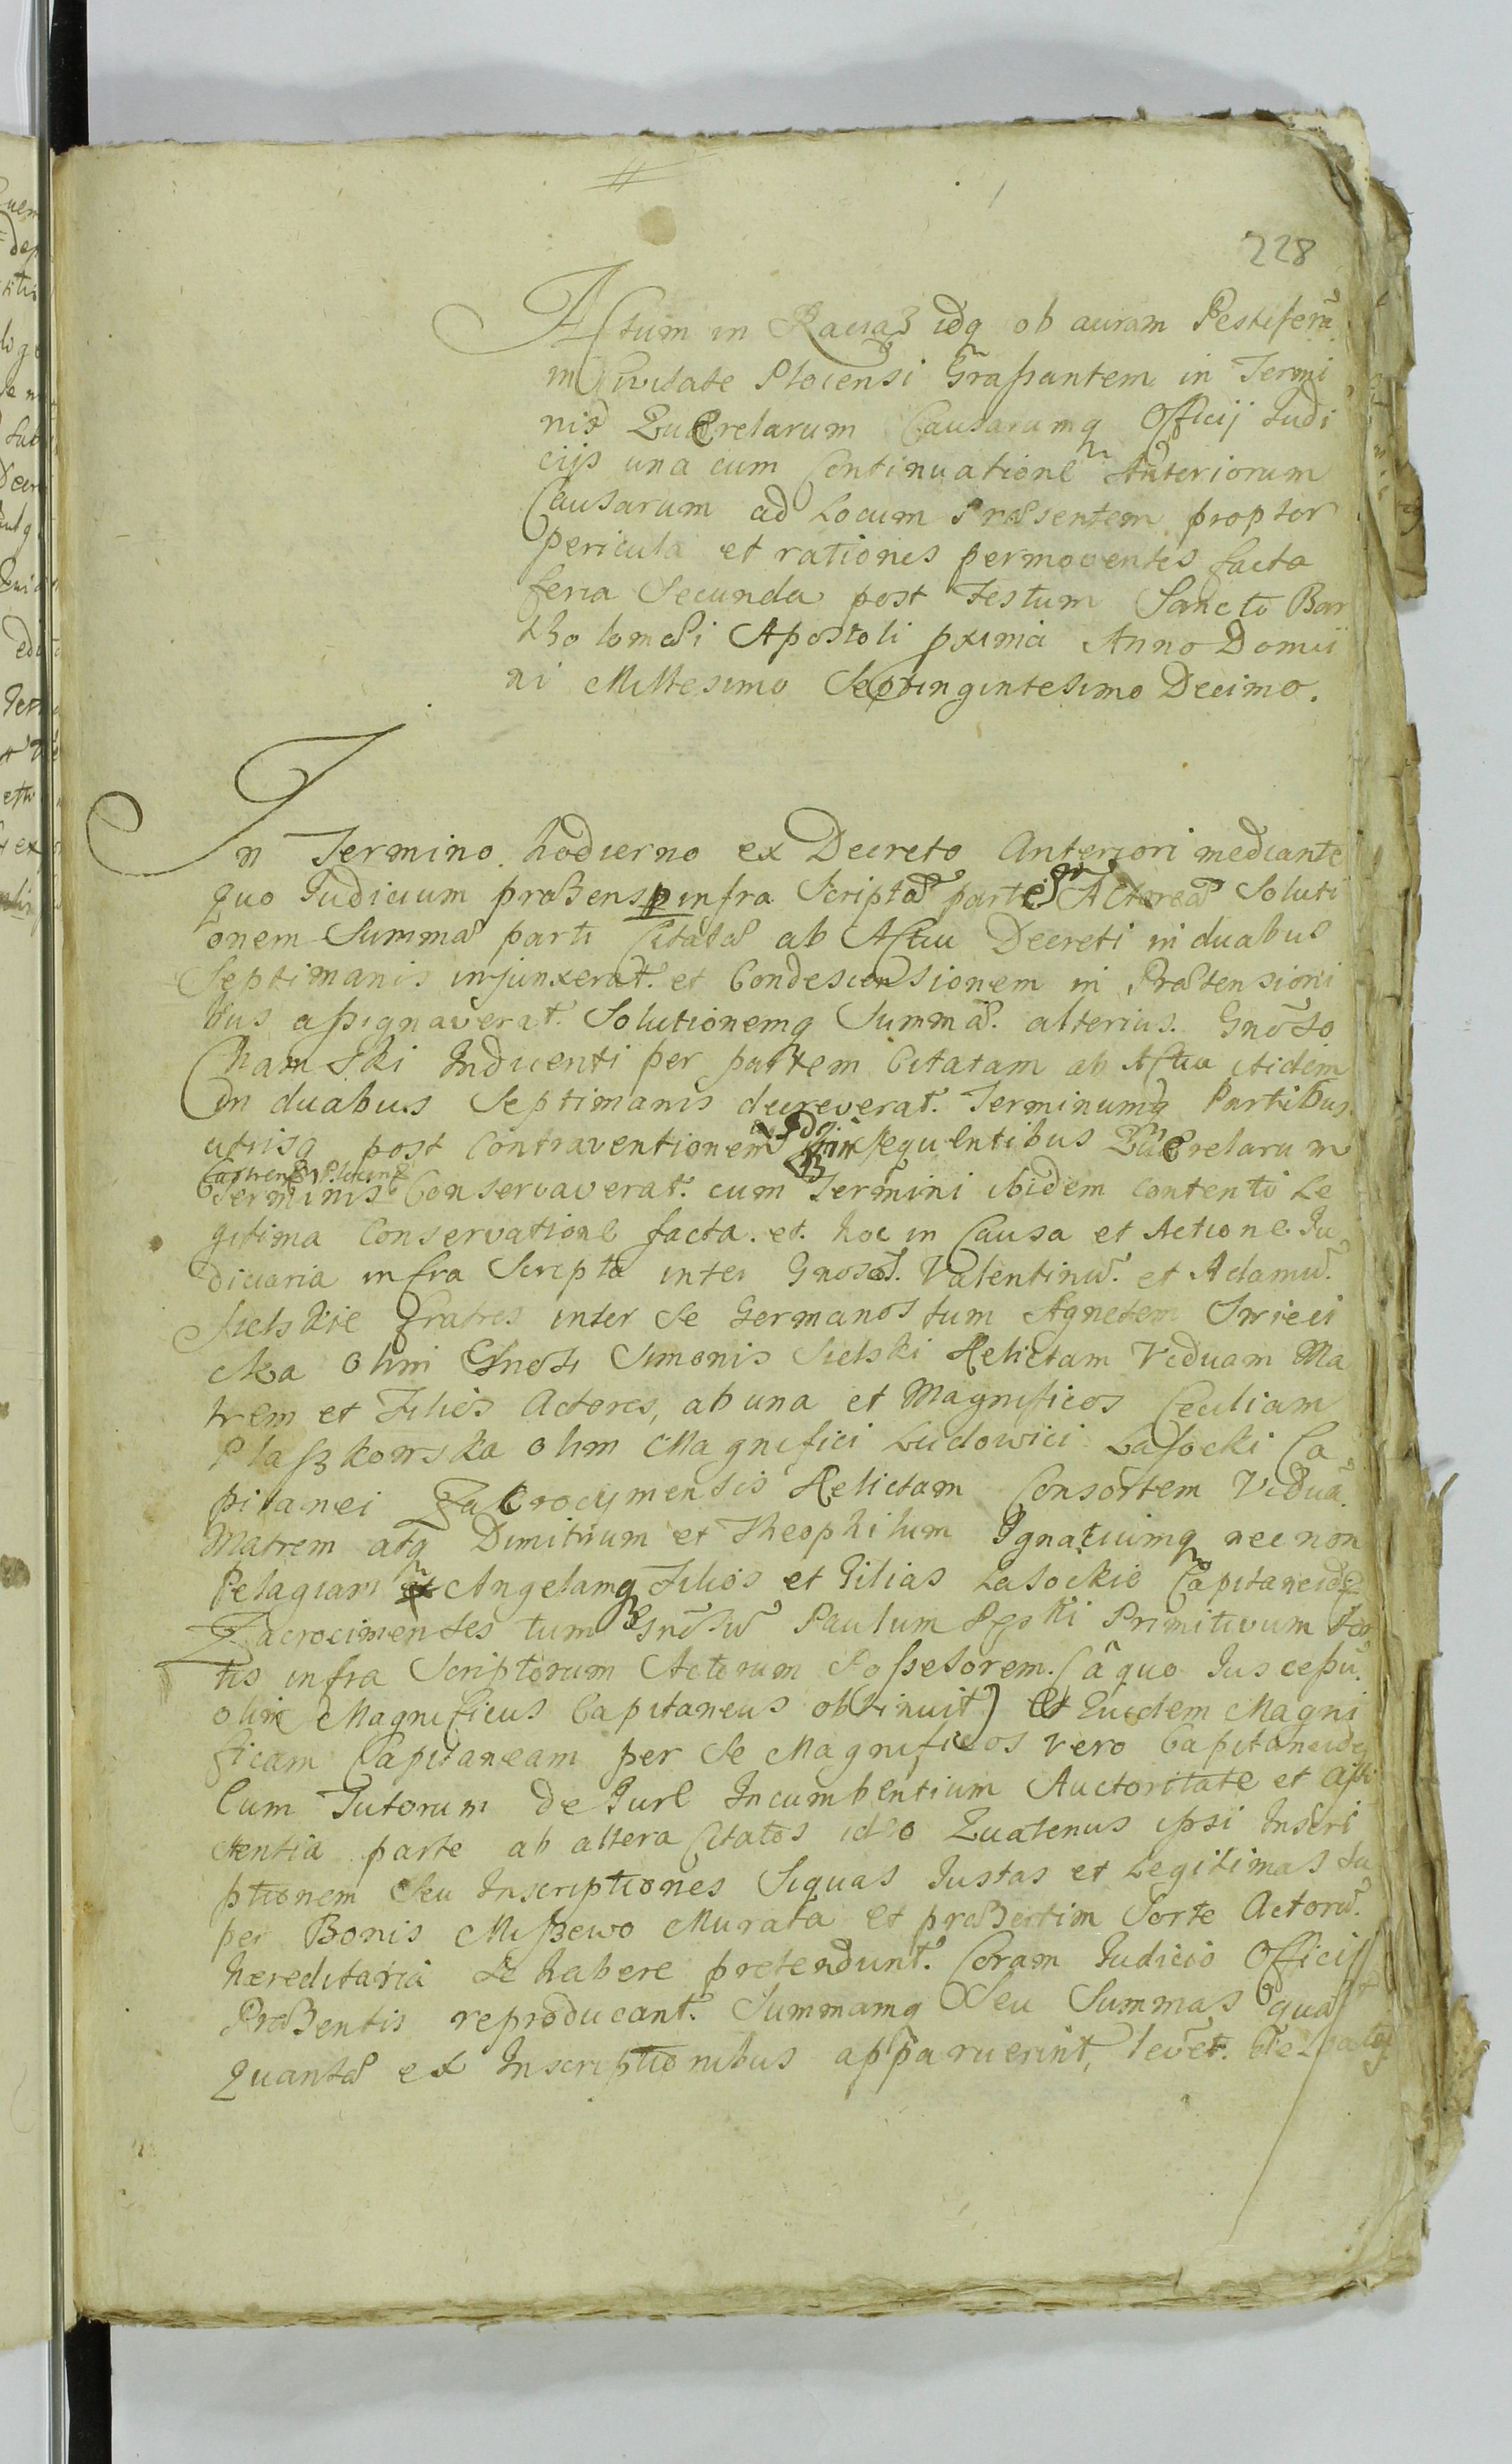 228
Actum in Raciąz idq ob auram Pestiferã
in Civitate Plocensi Grassantem in Termi
nis Quærelarum Causarumq Officij Judi
cijs una cum Continuatione Anteriorum
Causarum ad Locum Præsentem propter
pericula et rationes permoventes facta
feria Secunda post Festum Sancti Bar
tholomæi Apostoli pxima Anno Domi
ni Millesimo Septingintesimo Decimo.
In Termino hodierno ex Decreto Anteriori mediante
quo Judicium præsens infra Scriptæ parti Actoreæ Soluti
onem Summæ parti Citatæ ab Actu Decreti in duabus
Septimanis injunxerat. et Condescensionem in Prætensioni
bus assignaverat. Solutionemq Summæ. alterius. Gnõso
Chamski Inducenti per partem Citatam ab Actu itidem
in duabus Septimanis decreverat. Terminumq Partibus
utrisq post Contraventionem in sequentibus Quærelarum
Castrens Plocens
Terminis Conservaverat. cum Termini ibidem contenti Le
gitima Conservatione facta. et. hoc in Causa et Actione Ju
diciaria infra Scripta inter Gnosos. Valentinũ. et Adamũ.
Sielskie fratres inter Se Germanos tum Agnetem
cka olim Gnosi Simonis Sielski Relictam Viduam Ma
trem et Filios Actores, ab una et Magnificos Ceciliam
Plaszkowska olim Magnifici Ludowici Lasocki Ca
pitanei Zakrocymensis Relictam Consortem Viduã
Matrem atq Dimitrium et Theophilum Ignatiumq nec non
Pelagiam Angelamq Filios et Filias Lasockie Capitaneides
Zacrocimenses tum Gnõsũ Paulum Primitivum Sor
tis infra Scriptorum Actorum Possesorem. (â quo Jus cessũ
olim Magnificus Capitaneus obtinuit) et Euidem Magni
ficam Capitaneam per Se Magnificos vero Capitaneides
Cum Tutorum de Jure Incumbentium Auctoritate et assi
stentia parte ab altera Citatos ideo Quatenus ipsi Inscri
ptionem Seu Inscriptiones Siquas Justas et Legitimas Su
per Bonis Miszewo Murata et præsertim Sorte Actorũ.
hæreditaria Se habere pretendunt. Coram Judicio Officij
Præsentis reproducant. Summamq Seu Summas quæ
Quantæ ex Inscriptionibus apparuerint, levẽt.